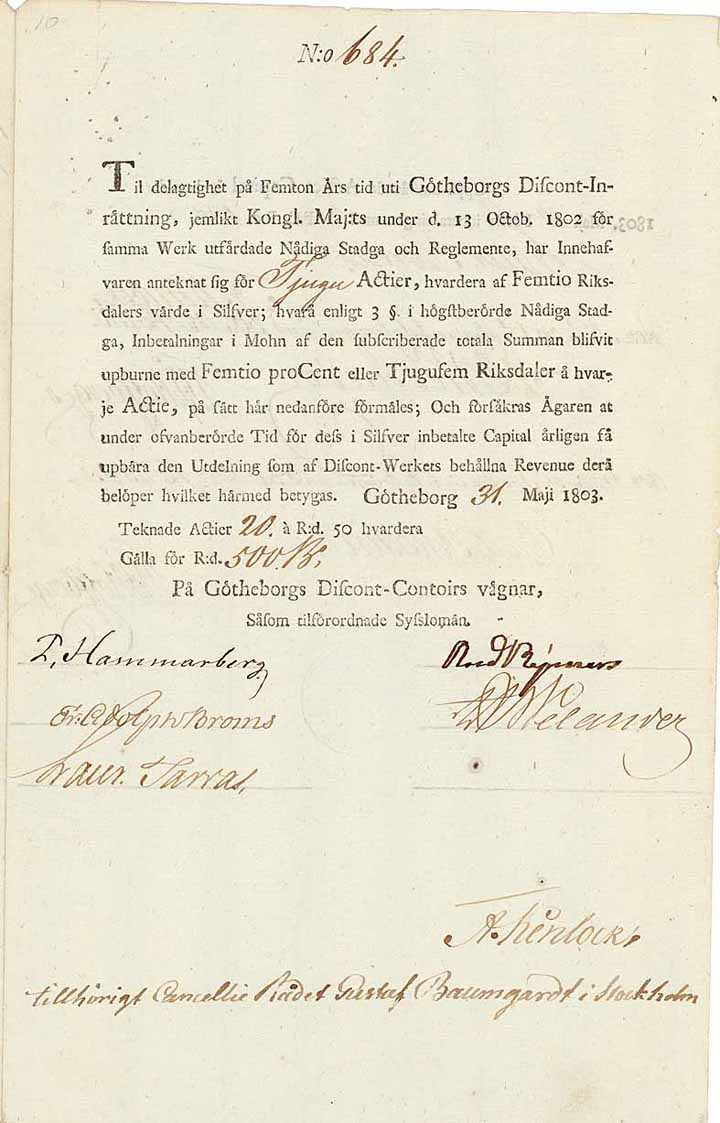 10
N:o 684.
Til delagtighet på Femton Års tid uti Götheborgs Discont-In-
råttning, jemlikt Kongl. Maj:ts under d. 13 Octob. 1802 för
samma Werk utfårdade Nådiga Stadga och Reglemente, har Innehaf-
varen anteknat sig för Tjugu Actier, hvardera af Femtio Riks-
dalers vårde i Silfver; hvarå enligt 3 §. i högstberörde Nådiga Stad-
ga, Inbetalningar i Mohn af den subscriberade totala Summan blifvit
upburne med Femtio proCent eller Tjugufem Riksdaler å hvar-
je Actie, på sått hår nedanföre förmåles; Och försåkras Ågaren at
under ofvanberörde Tid för dess i Silfver inbetalte Capital årligen få
upbåra den Utdelning som af Discont-Werkets behållna Revenue derå
belöper hvilket hårmed betygas. Götheborg 31. Maji 1803.
Teknade Actier 20. à R:d. 50 hvardera
Gålla för R:d. 500 B:
På Götheborgs Discont-Contoirs vågnar,
Såsom tilförordnade Sysslomån.
P. Hammarberg
Fr: Adolph Broms
Welander
Laur. Tarras.
A. Kenlock
tillhörigt Cancellie Rådet Gustaf Baumgardt i Stockholm
1803.